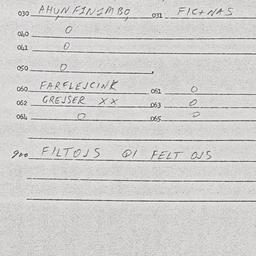 030 AHUN FINIMBO 031 FIC+NAS
040 0
041 0
050 0
060 FARFLEJCINK 061 0
062 GREJSER XX 063 0
064 0 065 0
900 FILTOJS QI FELT OJS